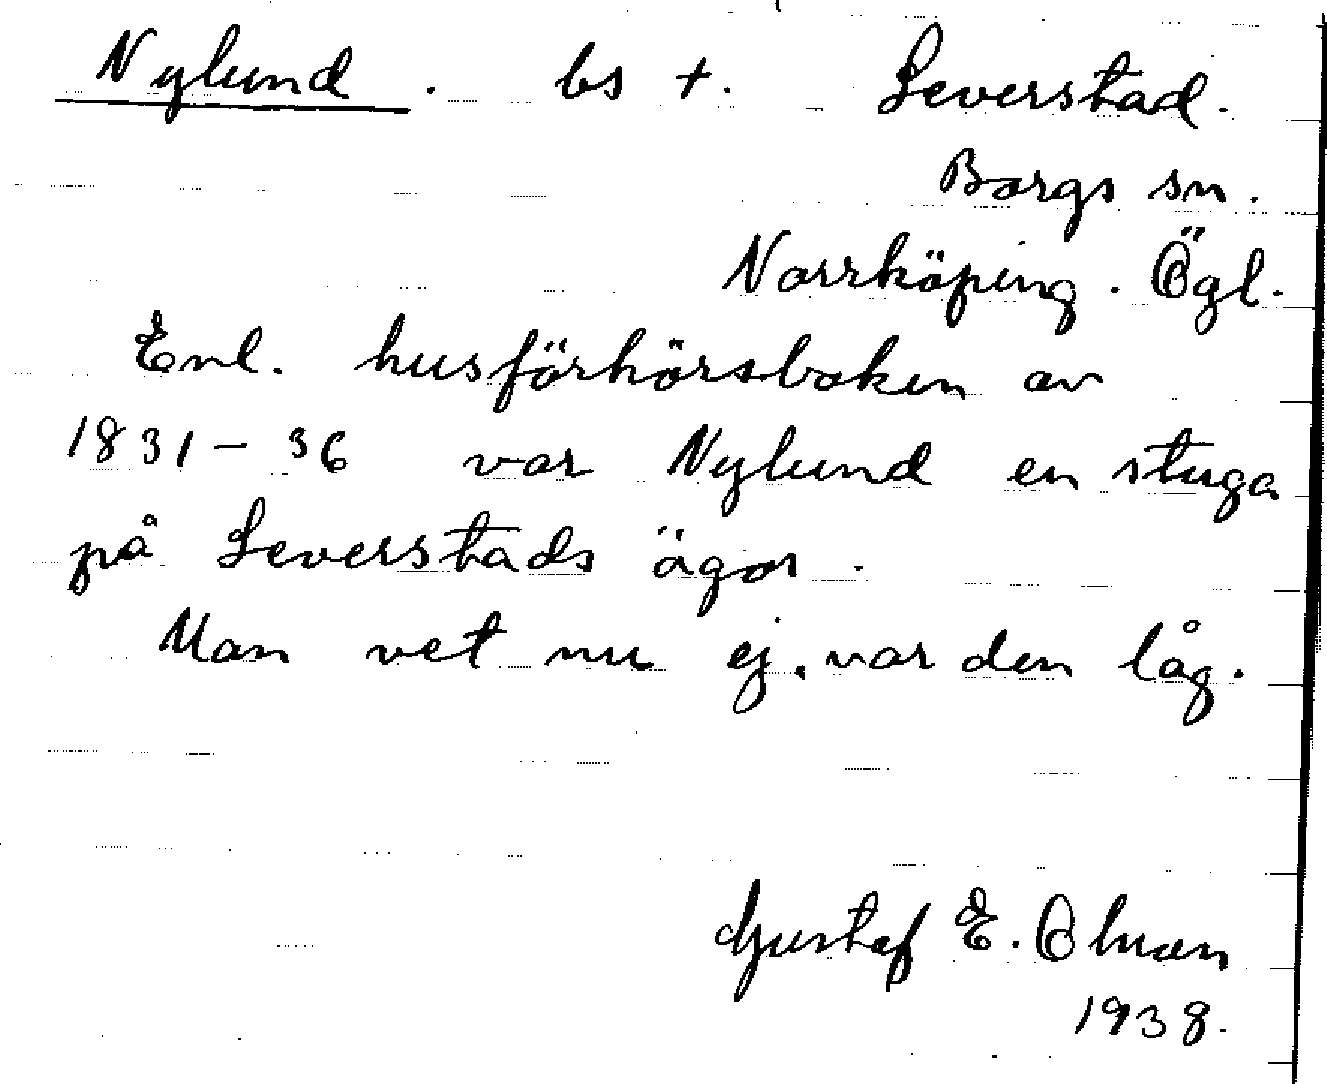 Nylund. bs +. Leverstad.
Borgs sn.
Norrköping. Ögl.
Enl. husförhörsboken av
1831-36 var Nylund en stuga
på Leverstads ägor.
Man vet nu ej, var den låg.
Gustaf E. Olsson
1938.